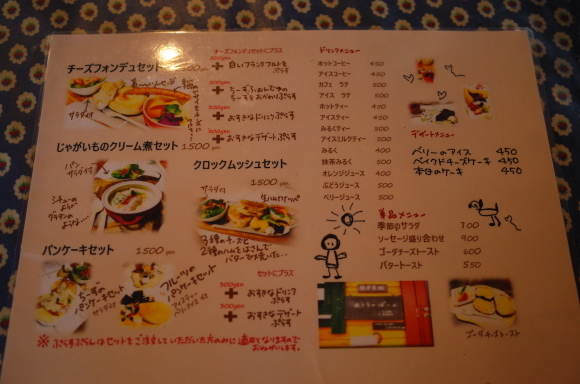 チーズフォンデュセット
チーズフォンデュセットにプラス
白いフランクフルトを
ぷらす
ちーずふぉんでゅの
ちーずをおかわりぷらす
おすきなドリンクぷらす
おすきなデザートぷらす
サラダ付
じゃがいものクリーム煮セット 1500 yen
パン、
サラダ付
シチューの
ような
グラタンの
ような。
クロックムッシュセット
1500 yen
サラダ付
3種のチーズと
2種のハムをはさんで
バターで焼いた…
パンケーキセット 1500 yen
ちーずの
パンケーキセット
サラダ付
フルーツの
パンケーキセット
セットにプラス
300yen
おすきなドリンク
ぷらす
300yen
おすきなデザート
ぷらす
※ぷらすぷらんはセットをご注文していただいた方のみに適用となりますので
おねがいします。
ドリンクメニュー
ホットコーヒー 450
アイスコーヒー 450
カフェ ラテ 500
アイス ラテ 500
ホットティー 450
アイスティー 450
みるくティー 500
アイスミルクティー 500
みるく 400
抹茶みるく 500
オレンジジュース 400
ぶどうジュース 500
ベリージュース 500
デザートメニュー
ベリーのアイス 450
ベイクドチーズケーキ 450
本日のケーキ 450
単品メニュー
季節のサラダ 700
ソーセージ盛り合わせ 900
ゴーダチーズトースト 600
バタートースト 550
ゴーダチーズトースト